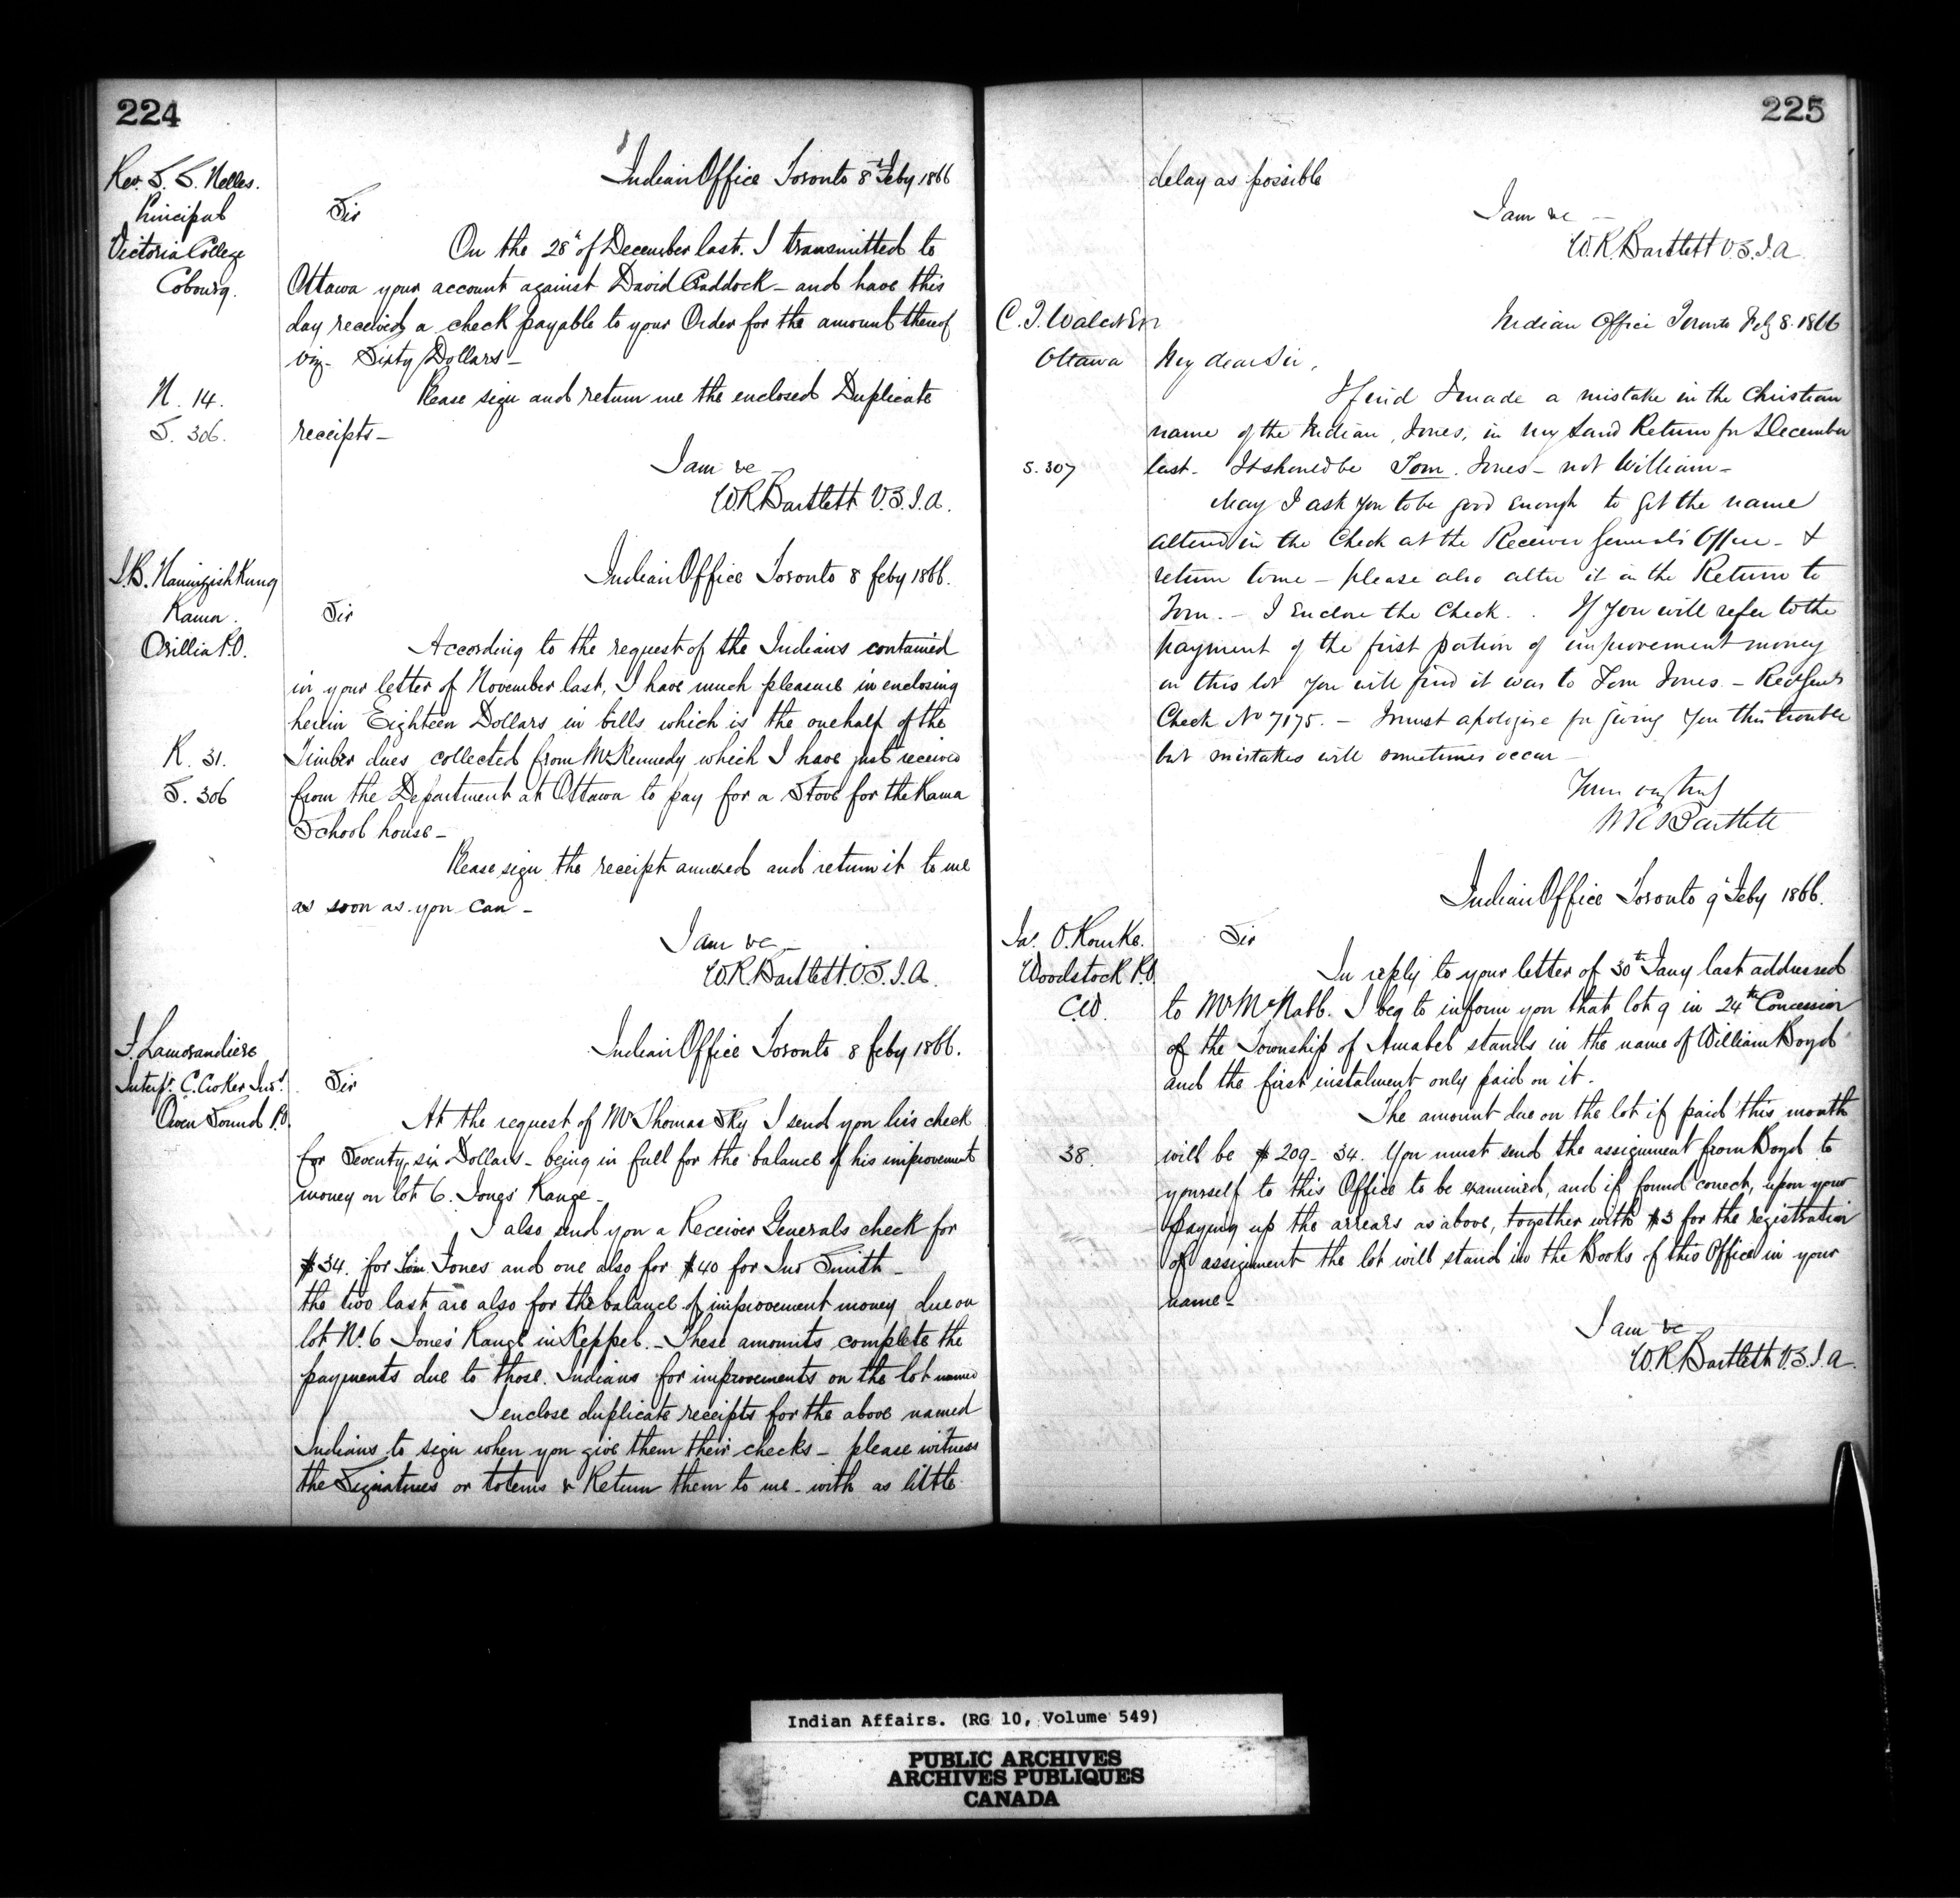 224
Rev. S. S. Nelles.
Principal
Victoria College
Cobourg.
Indian Office Toronto 8th Feby 1866
Sir
On the 28th of December last. I transmitted to
Ottawa your account against David Craddock - and have this
day received a check payable to your Order for the amount thereof
viz - Sixty Dollars -
N. 14.
S. 306.
Please sign and return me the enclosed Duplicate
receipts -
I am &c -
W.R. Bartlett V.S.I.A.
J.B.
Rama.
Orillia P.O.
Indian Office Toronto 8 Feby 1866.
Sir
According to the request of the Indians contained
in your letter of November last, I have much pleasure in enclosing
herein Eighteen Dollars in bills which is the one half of the
R. 31.
S. 306
Timber dues collected from Mr Kennedy which I have just received
from the Department at Ottawa to pay for a Stove for the Rama
School house -
Please sign the receipt annexed and return it to me
as soon as you can -
I am &c -
W.R. Bartlett. V.S.I.A.
F. Lamorandiere
Interpr. C. Croker Inds.
Owen Sound P.O.
Indian Office Toronto 8 Feby 1866.
Sir
At the request of Mr Thomas Sky I send you his check
for Seventy six Dollars - being in full for the balance of his improvement
money on lot 6. Jones' Range -
I also send you a Receiver Generals check for
$34. for Tom Jones and one also for $40 for Jno Smith -
the two last are also for the balance of improvement money due on
lot No. 6 Jones' Range in Keppel. - These amounts complete the
payments due to those Indians for improvements on the lot named
I enclose duplicate receipts for the above named
Indians to sign when you give them their checks - please witness
the Signatures or totems & Return them to me - with as little
225
delay as possible
I am &c -
W.R. Bartlett V.S.I.A.
C. T. Walcot Esq
Ottawa
S. 307
Indian Office Toronto Feby 8. 1866
My dear Sir,
I find I made a mistake in the Christian
name of the Indian, Jones, in my Land Return for December
last. It should be Tom. Jones - not William -
May I ask you to be good enough to get the name
altered in the Check at the Receiver General's Office - &
return to me - please also alter it in the Return to
Tom. - I enclose the Check. . If you will refer to the
payment of the first portion of improvement money
on this lot you will find it was to Tom Jones. - Rec Genls
Check No 7175. - I must apologise for giving you this trouble
but mistakes will sometimes occur -
Yours very truly
W R Bartlett
Jas. O. Rourke.
Woodstock P.O.
C.W.
38.
Indian Office Toronto 9th Feby 1866.
Sir
In reply to your letter of 30th Jany last addressed
to Mr McNabb. I beg to inform you that lot 9 in 24th Concession
of the Township of Amabel stands in the name of William Boyd
and the first instalment only paid on it.
The amount due on the lot if paid this month
will be $209-34. You must send the assignment from Boyd to
yourself to this Office to be examined, and if found correct, upon your
paying up the arrears as above, together with $3 for the registration
of assignment the lot will stand in the Books of this Office in your
name -
I am &c
W.R. Bartlett V.S.I.A.
Indian Affairs. (RG 10, Volume 549)
PUBLIC ARCHIVES
ARCHIVES PUBLIQUES
CANADA